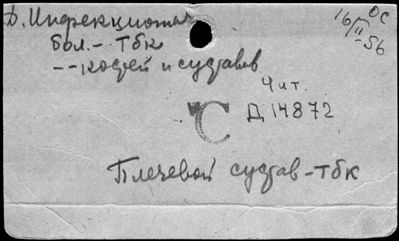 Д. Инфекцион
бол. - тбк
-- костей и суставов
16/II-56
ОС
Чит.
Д 14872
С
Плечевой сустав - тбк